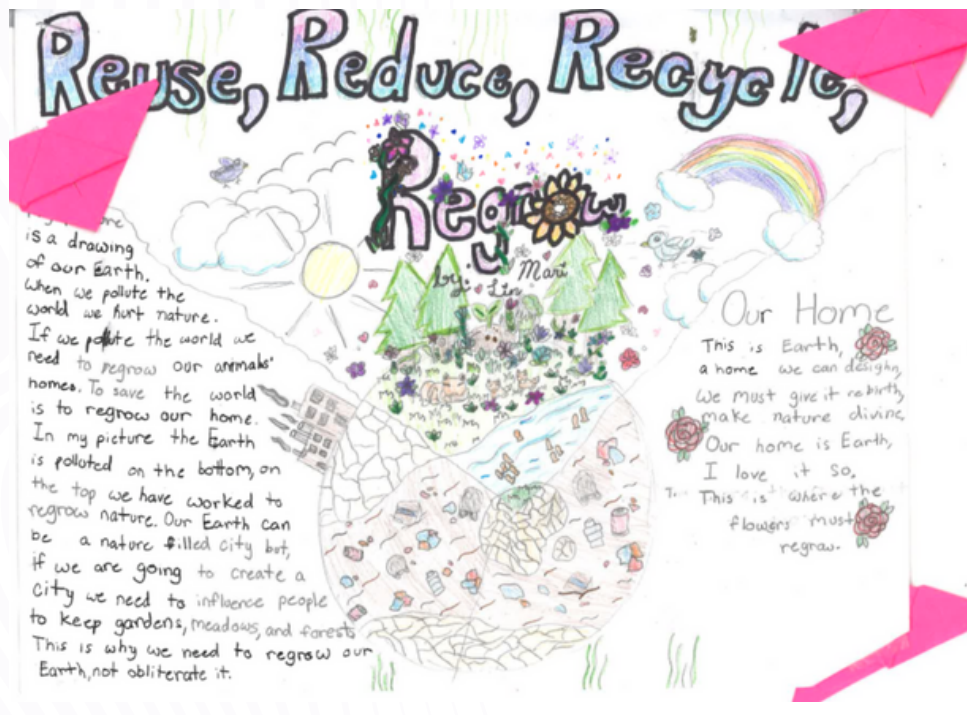 Reuse, Reduce, Recycle,
Regrow
by: Mari
Lin
is a drawing
of our Earth.
When we pollute the
world we hurt nature.
If we pollute the world we
need to regrow our animals'
homes. To save the world
is to regrow our home.
In my picture the Earth
is polluted on the bottom, on
the top we have worked to
regrow nature. Our Earth can
be a nature filled city bot,
if we are going to create a
city we need to influence people
to keep gardens, meadows, and forests
This is why we need to regrow our
Earth, not obliterate it.
Our Home
This is Earth,
a home we can design,
We must give it rebirth,
make nature divine
Our home is Earth,
I love it so.
This is where the
flowers must
regrow.